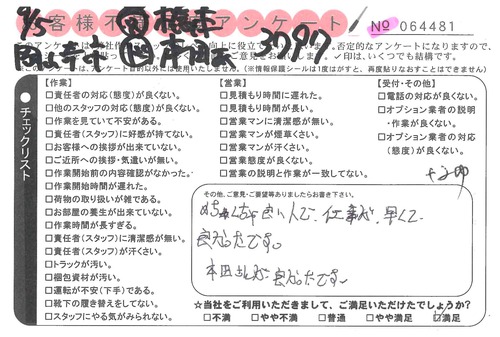 お客様不満足アンケート
№ 064481
9/5
3097
このアンケートは
✓印は、いくつでも結構です。
(※情報保護シールは1度はがすと、再度貼りなおすことはできません)
チェックリスト
【作業】
□責任者の対応(態度)が良くない。
□他のスタッフの対応(態度)が良くない。
□作業を見ていて不安がある。
□責任者(スタッフ)に好感が持てない。
□お客様への挨拶が出来ていない。
□ご近所への挨拶・気遣いが無い。
□作業開始前の内容確認がなかった。
□作業開始時間が遅れた。
□荷物の取り扱いが雑である。
□お部屋の養生が出来ていない。
□作業時間が長すぎる。
□責任者(スタッフ)に清潔感が無い。
□責任者(スタッフ)が汗くさい。
□トラックが汚い。
□梱包資材が汚い。
□運転が不安(下手)である。
□靴下の履き替えをしてない。
□スタッフにやる気がみられない。
【営業】
□見積もり時間に遅れた。
□見積もり時間が長い。
□営業マンに清潔感が無い。
□営業マンが煙草くさい。
□営業マンが汗くさい。
□営業態度が良くない。
□営業の説明と作業が一致してない。
【受付・その他】
□電話の対応が良くない。
□オプション業者の説明・作業が良くない。
□オプション業者の対応(態度)が良くない。
その他、ご意見・ご要望等ありましたらお書き下さい。
めちゃくちゃ良い人で、仕事が早くて
良かったです。
本田さんが良かったです。
☆当社をご利用いただきまして、ご満足いただけたでしょうか？
□不満 □やや不満 □普通 □やや満足 □満足